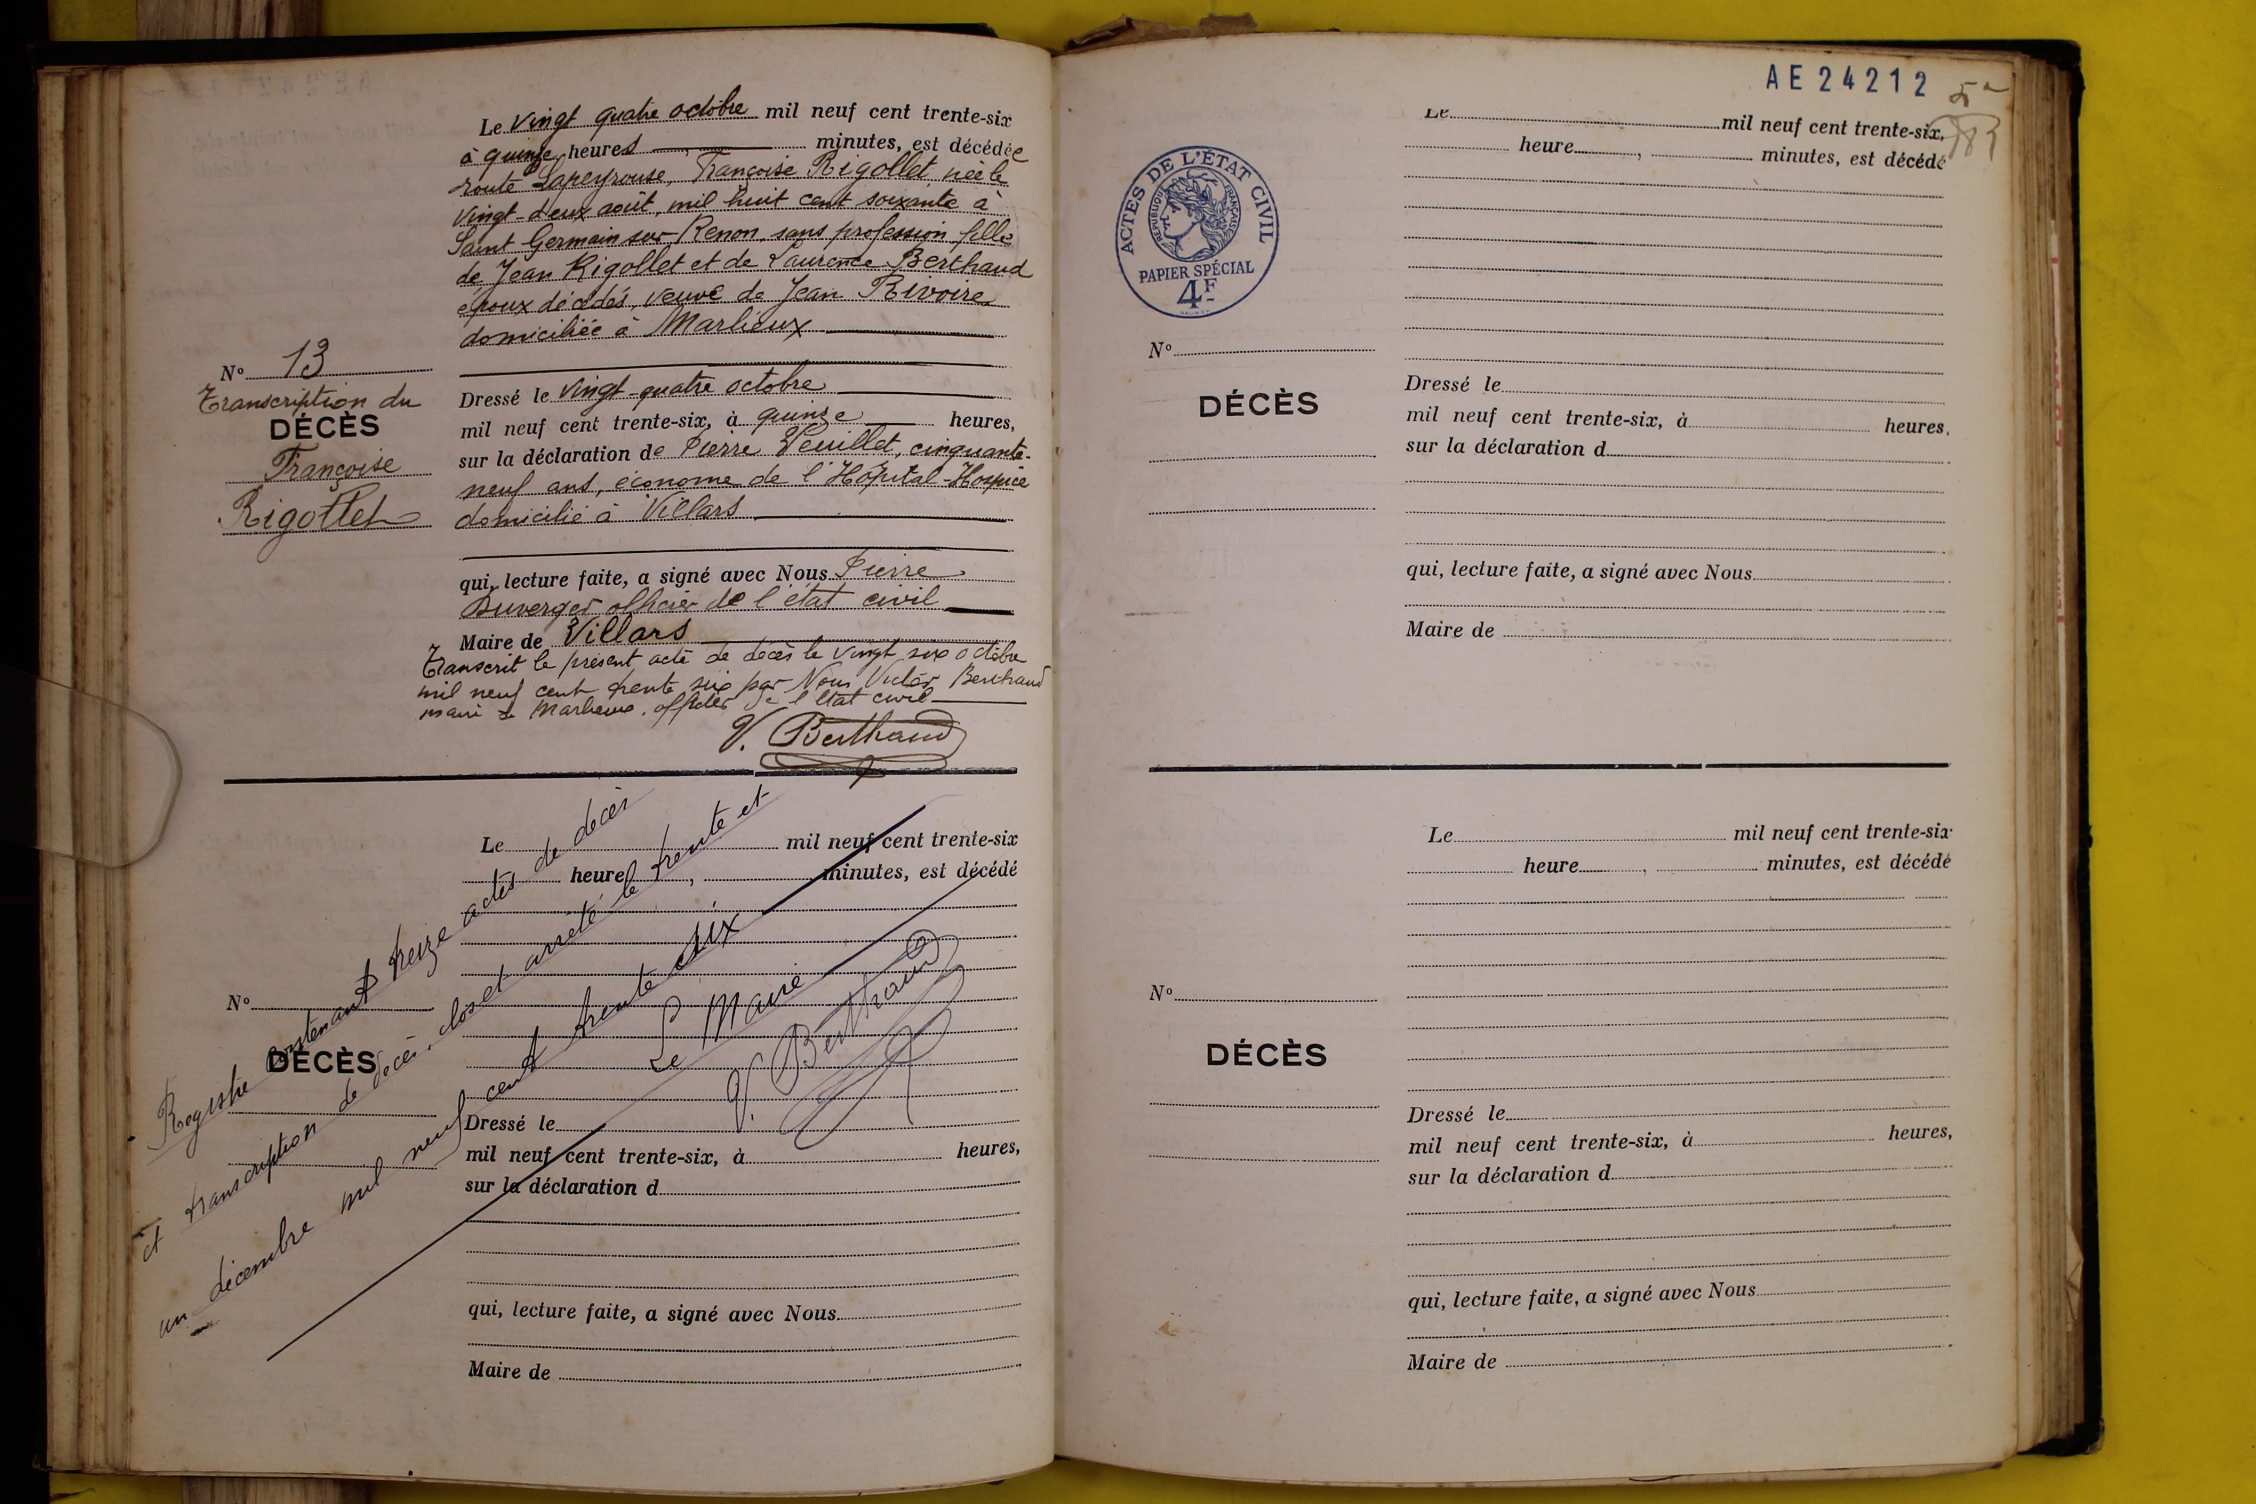 Le vingt quatre octobre mil neuf cent trente-six
à quinze heures minutes, est décédée
route Lapeyrouse, Françoise Rigollet, née le
vingt-deux août, mil huit cent soixante à
Saint Germain sur Renon, sans profession fille
de Jean Rigollet et de Laurence Berthaud
époux décédés, veuve de Jean Rivoire
domiciliée à Marlieux
N° 13
Transcription du
DÉCÈS
Françoise
Rigollet
Dressé le vingt-quatre octobre
mil neuf cent trente-six, à quinze heures,
sur la déclaration de Pierre Veuillet, cinquante-
neuf ans, économe de l'Hôpital-Hospice
domicilié à Villars
qui, lecture faite, a signé avec Nous Pierre
Duverger officier de l'état civil
Maire de Villars
Transcrit le présent acte de décès le vingt six octobre
mil neuf cent trente six par Nous Victor Berthaud
maire de Marlieux, officier de l'état civil
V. Berthaud
Le mil neuf cent trente-six
heure , minutes, est décédé
N°
DÉCÈS
Dressé le
mil neuf cent trente-six, à heures,
sur la déclaration d
qui, lecture faite, a signé avec Nous
Maire de
Registre contenant treize actes de décès
et transcription de décès, clos et arrêté le trente et
un décembre mil neuf cent trente six
Le Maire
V. Berthaud
AE24212
ACTES DE L'ÉTAT CIVIL
RÉPUBLIQUE FRANÇAISE
PAPIER SPÉCIAL
4F
Le mil neuf cent trente-six,
heure , minutes, est décédé
N°
DÉCÈS
Dressé le
mil neuf cent trente-six, à heures,
sur la déclaration d
qui, lecture faite, a signé avec Nous
Maire de
Le mil neuf cent trente-six
heure , minutes, est décédé
N°
DÉCÈS
Dressé le
mil neuf cent trente-six, à heures,
sur la déclaration d
qui, lecture faite, a signé avec Nous
Maire de